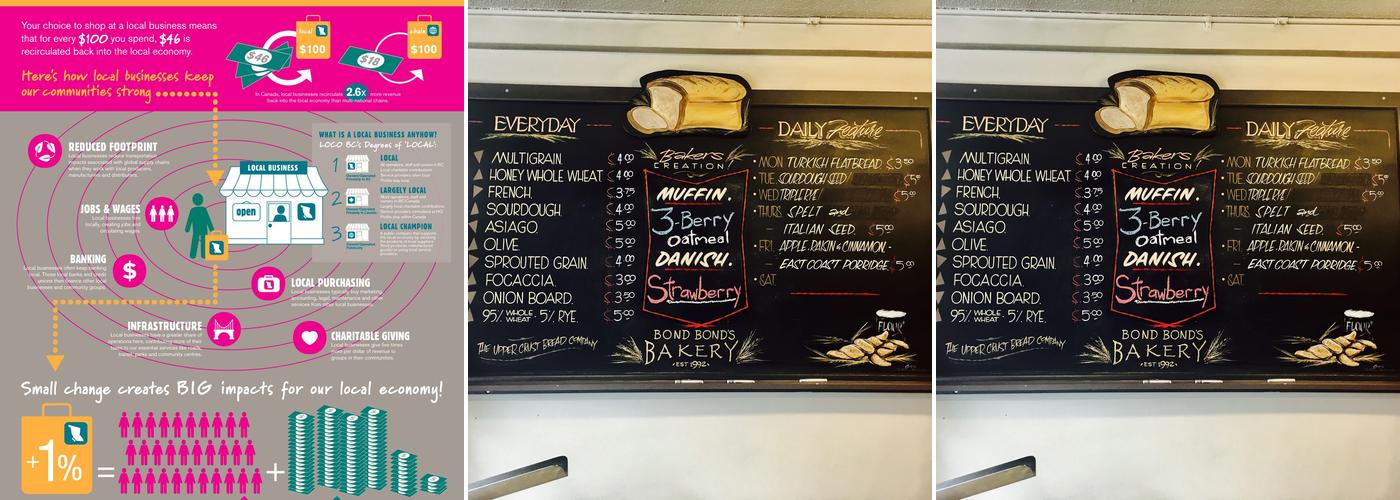 Your choice to shop at a local business means
that for every $100 you spend, $46 is
recirculated back into the local economy.
Here's how local businesses keep
our communities strong
$46
local
$100
$18
chain
$100
In Canada, local businesses recirculate 2.6x more revenue
back into the local economy than multi-national chains.
WHAT IS A LOCAL BUSINESS ANYHOW?
LOCO BC's Degrees of 'LOCAL':
1
LOCAL
2
LARGELY LOCAL
3
LOCAL CHAMPION
REDUCED FOOTPRINT
Local businesses reduce transportation
impacts associated with global supply chains
when they use local producers,
manufacturers and distributors.
LOCAL BUSINESS
open
JOBS & WAGES
Local businesses hire
locally, creating jobs and
circulating wages.
BANKING
Local businesses often keep banking
local. Those local banks and credit
unions then finance other local
businesses and community groups.
$
LOCAL PURCHASING
Local businesses typically buy marketing,
accounting, legal, maintenance and other
services from other local businesses.
INFRASTRUCTURE
Local businesses have a greater share of
operations here, contributing more of their
taxes to our essential services like roads,
transit, parks and community centres.
CHARITABLE GIVING
Local businesses give five times
more per dollar of revenue to
groups in their communities.
Small change creates BIG impacts for our local economy!
+1%
=
+
EVERYDAY
MULTIGRAIN. $4.00
HONEY WHOLE WHEAT $4.00
FRENCH. $3.75
SOURDOUGH $4.00
ASIAGO. $5.00
OLIVE. $5.00
SPROUTED GRAIN. $4.00
FOCACCIA. $3.00
ONION BOARD. $3.50
95% WHOLE WHEAT · 5% RYE. $5.00
THE UPPER CRUST BREAD COMPANY
Bakers
CREATION!
MUFFIN.
3-Berry
Oatmeal
DANISH.
Strawberry
BOND BOND'S
BAKERY
EST 1992
DAILY Feature
MON TURKISH FLATBREAD $3.50
TUE SOURDOUGH SEED
WED TRIPLE RYE
THURS SPELT and
ITALIAN SEED. $5.00
FRI. APPLE. RAISIN & CINNAMON -
EAST COAST PORRIDGE. $5.00
SAT.
FLOUR
EVERYDAY
MULTIGRAIN. $4.00
HONEY WHOLE WHEAT $4.00
FRENCH. $3.75
SOURDOUGH $4.00
ASIAGO. $5.00
OLIVE. $5.00
SPROUTED GRAIN. $4.00
FOCACCIA. $3.00
ONION BOARD. $3.50
95% WHOLE WHEAT · 5% RYE. $5.00
THE UPPER CRUST BREAD COMPANY
Bakers
CREATION!
MUFFIN.
3-Berry
Oatmeal
DANISH.
Strawberry
BOND BOND'S
BAKERY
EST 1992
DAILY Feature
MON TURKISH FLATBREAD $3.50
TUE SOURDOUGH SEED
WED TRIPLE RYE
THURS SPELT and
ITALIAN SEED. $5.00
FRI. APPLE. RAISIN & CINNAMON -
EAST COAST PORRIDGE. $5.00
SAT.
FLOUR